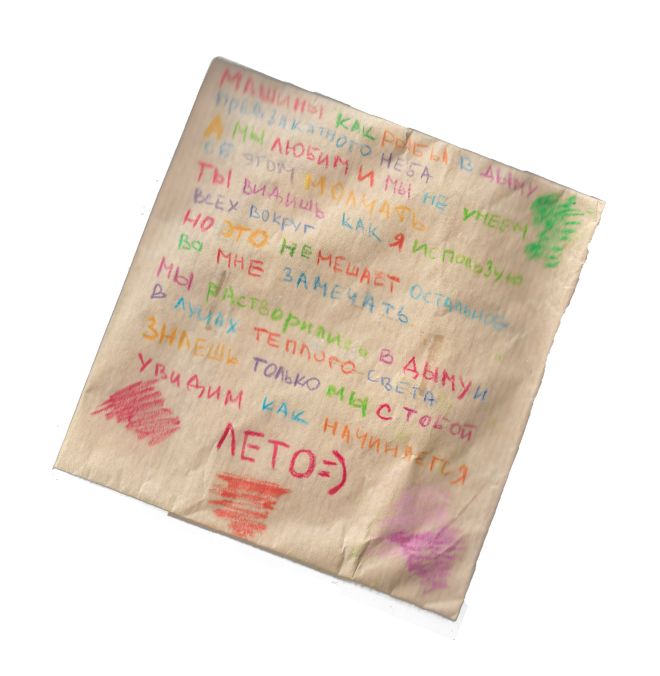 МАШИНЫ КАК РЫБЫ В ДЫМУ
ПРЕДЗАКАТНОГО НЕБА
А МЫ ЛЮБИМ И МЫ НЕ УМЕЕМ
ОБ ЭТОМ МОЛЧАТЬ
ТЫ ВИДИШЬ КАК Я ИСПОЛЬЗУЮ
ВСЕХ ВОКРУГ
НО ЭТО НЕ МЕШАЕТ ОСТАЛЬНОЕ
ВО МНЕ ЗАМЕЧАТЬ
МЫ РАСТВОРИЛИСЬ В ДЫМУ И
В ЛУЧАХ ТЕПЛОГО СВЕТА
ЗНАЕШЬ ТОЛЬКО МЫ С ТОБОЙ
УВИДИМ КАК НАЧИНАЕТСЯ
ЛЕТО=)